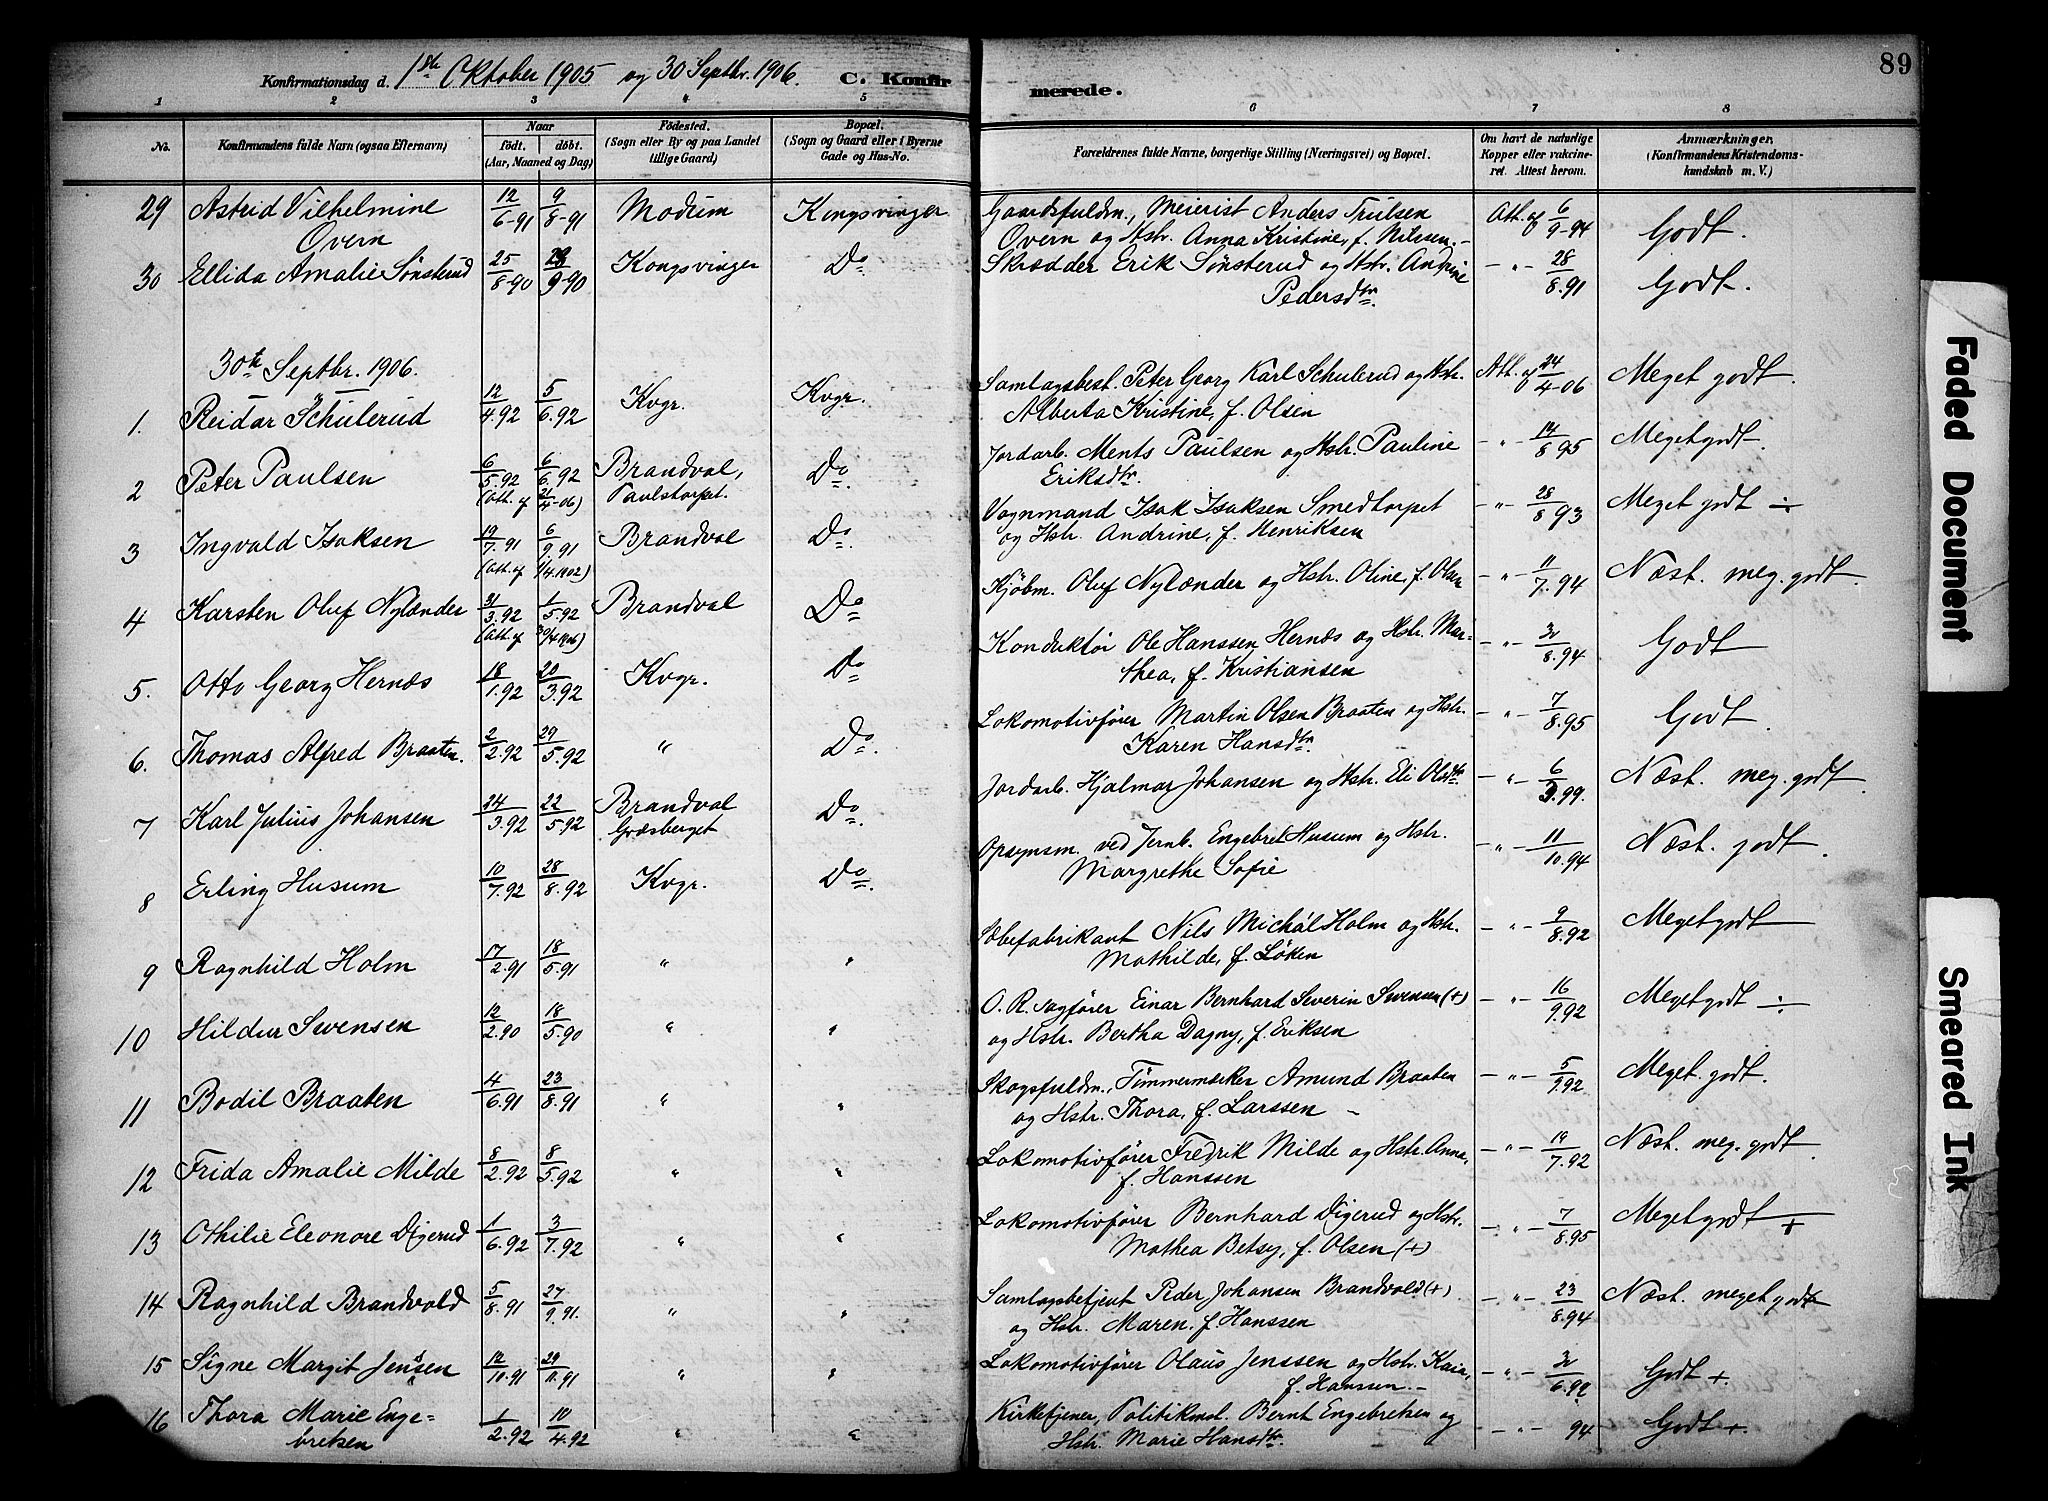 89
Konfirmationsdag d. 1ste Oktober 1905 og 30 Septbr. 1906. C. Konfirmerede.
1 2 3 4 5 6 7 8
No. Konfirmandens fulde Navn (ogsaa Efternavn) Naar født. døbt. (Aar, Maaned og Dag) Fødested. (Sogn eller By og paa Landet tillige Gaard) Bopæl. (Sogn og Gaard eller i Byerne Gade og Hus-No.) Forældrenes fulde Navne, borgerlige Stilling (Næringsvei) og Bopæl. Om havt de naturlige Kopper eller vakcineret. Attest herom. Anmærkninger. (Konfirmandens Kristendomskundskab m. V.)
29 Astrid Vilhelmine 12/6-91 9/8-91 Modum Kongsvinger Gaardsfuldm., Meierist Anders Trulsen Att. af 6/9-94 Godt.
Overn Overn og Hstr. Anna Kristine, f. Nilssen.
30 Ellida Amalie Sønsterud 25/8-90 28/9-90 Kongsvinger Do Skrædder Erik Sønsterud og Hstr. Andrine - " - 28/8.91 Godt.
Pedersdtr.
30te Septbr. 1906.
1. Reidar Schulerud 12/4.92 5/6.92 Kvgr. Kvgr. Samlagsbest. Peter Georg Karl Schulerud og Hstr. Att. af 24/4-06 Meget godt.
Alberta Kristine, f. Olsen
2 Peter Paulsen 6/5.92 6/6.92 Brandval, Do Jordarb. Ments Paulsen og Hstr. Pauline - " - 14/8 95 Meget godt
(Att. af 21/4-06) Paulstorpet. Eriksdtr.
3 Ingvald Isaksen 19/7.91 6/9.91 Brandval Do Vognmand Isak Isaksen Smedtorpet - " - 28/8 93 Meget godt ÷
(Att. af 1/4.1902) og Hstr. Andrine, f. Henriksen
4 Karsten Oluf Nylænder 31/3.92 1/5.92 Brandval Do Kjøbm. Oluf Nylænder og Hstr. Oline, f. Olsen - " - 11/7.94 Næst. meg. godt.
(Att. af 30/4 1906)
5. Otto Georg Hernæs 18/1.92 20/3.92 Kvgr. Do Konduktør Ole Hanssen Hernæs og Hstr. Mar- - " - 30/8.94 Godt
thea, f. Kristiansen
6. Thomas Alfred Braaten. 2/2.92 29/5.92 " Do Lokomotivfører Martin Olsen Braaten og Hstr. - " - 7/8.95 Godt
Karen Hansdtr.
7 Karl Julius Johansen 24/3.92 22/5.92 Brandval Do Jordarb. Hjalmar Johansen og Hstr. Eli Olsdtr. - " - 6/3.99. Næst. meg. godt.
Græsberget
8 Erling Husum 10/7.92 28/8.92 Kvgr. Do Opsynsm. ved Jernb. Engebret Husum og Hstr. - " - 11/10.94 Næst. godt.
Margrethe Sofie
9 Ragnhild Holm 17/2.91 18/5.91 " " Sæbefabrikant Nils Michál Holm og Hstr. - " - 9/8.92 Meget godt
Mathilde, f. Løken
10 Hildur Swensen 12/2.90 18/5.90 " " O. R. sagfører Einar Bernhard Severin Swensen (+) - " - 16/9.92 Meget godt ÷
og Hstr. Bertha Dagny, f. Eriksen
11 Bodil Braaten 4/6.91 23/8.91 " " Skogsfuldm., Tømmermærker Amund Braaten - " - 5/9.92 Meget godt.
og Hstr. Thora, f. Larssen -
12 Frida Amalie Milde 8/2.92 8/5.92 " " Lokomotivfører Fredrik Milde og Hstr. Anna, - " - 19/7.92 Næst. meg. godt
f. Hanssen
13 Othilie Eleonore Digerud 1/6.92 3/7.92 " " Lokomotivfører Bernhard Digerud og Hstr. - " - 7/8.95 Meget godt +
Mathea Betsy, f. Olsen (+)
14 Ragnhild Brandvold 5/8.91 27/9.91. " " Samlagsbetjent Peder Johansen Brandvold (+) - " - 23/8.94 Næst. meget godt
og Hstr. Maren, f. Hanssen
15 Signe Margit Jenssen 12/10.91 29/11.91 " " Lokomotivfører Olaus Jenssen og Hstr. Kaia, - " - 30/6.92 Godt +.
f. Hanssen. -
16 Thora Marie Enge= 1/2.92 10/4.92 " " Kirketjener, Politikmst. Bernt Engebretsen og - " - 94 Godt +.
bretsen Hstr. Marie Hansdtr.
Faded Document
Smeared Ink